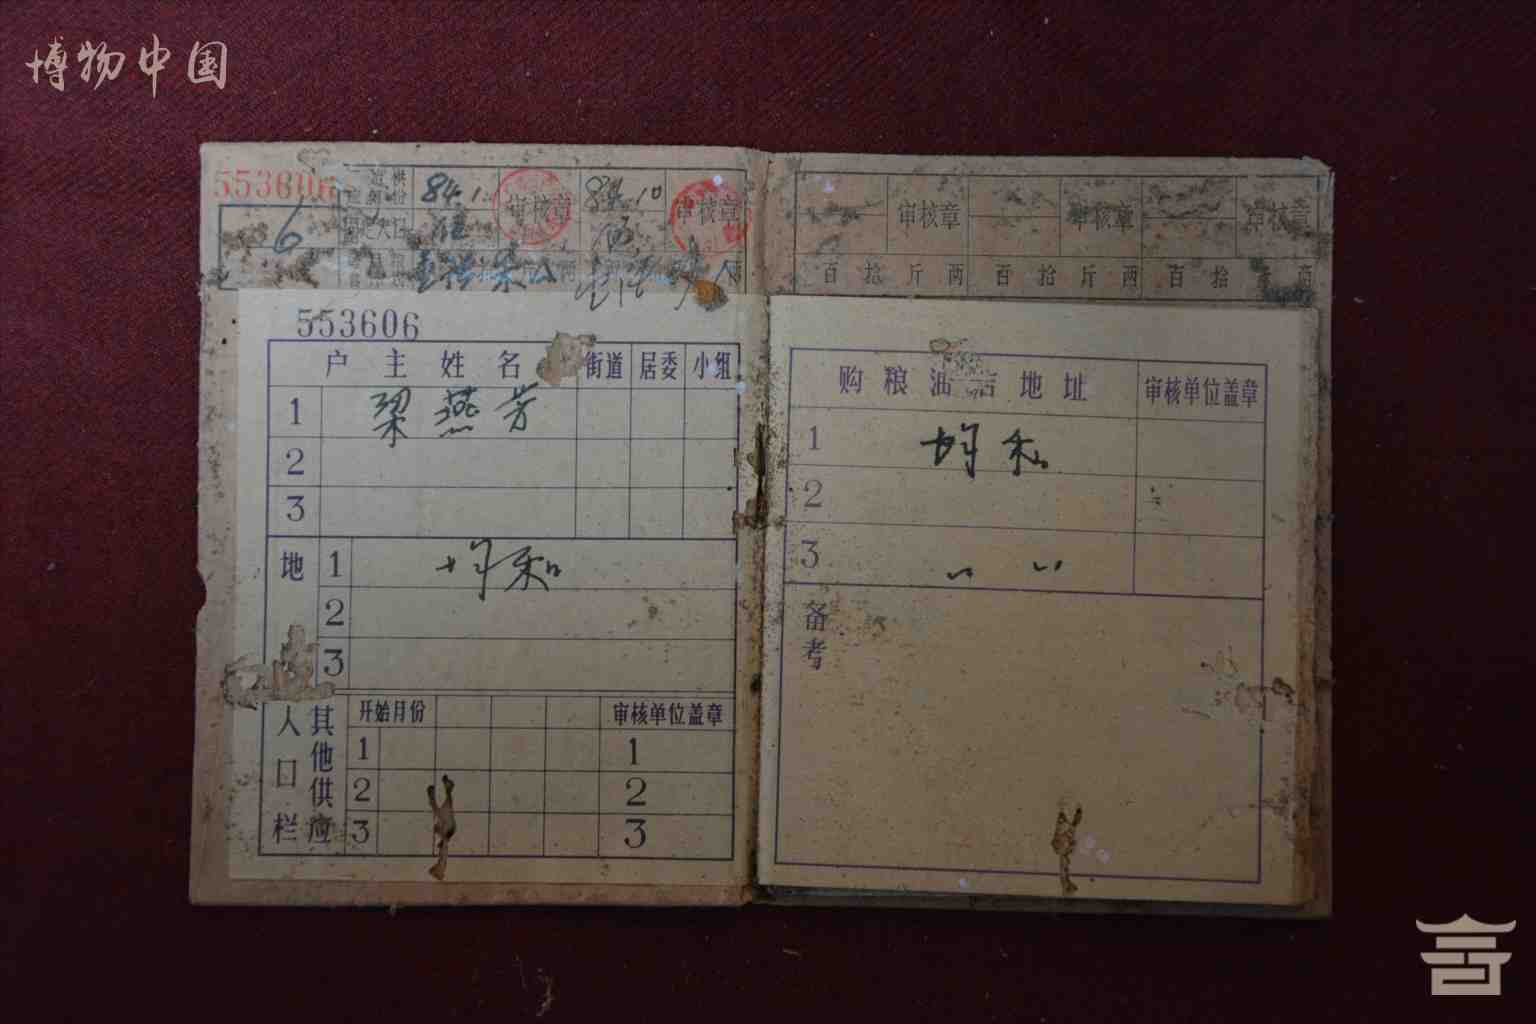 博物中国
553606
6
84.1.
审核章
84.10
审核章
审核章
审核章
审核章
百 拾 斤 两 百 拾 斤 两 百 拾
553606
户主姓名 街道 居委 小组
1 梁燕芳
2
3
地
1 均和
2
3
其他供应人口栏
开始月份 审核单位盖章
1 1
2 2
3 3
购粮油店地址 审核单位盖章
1 均和
2
3
备考